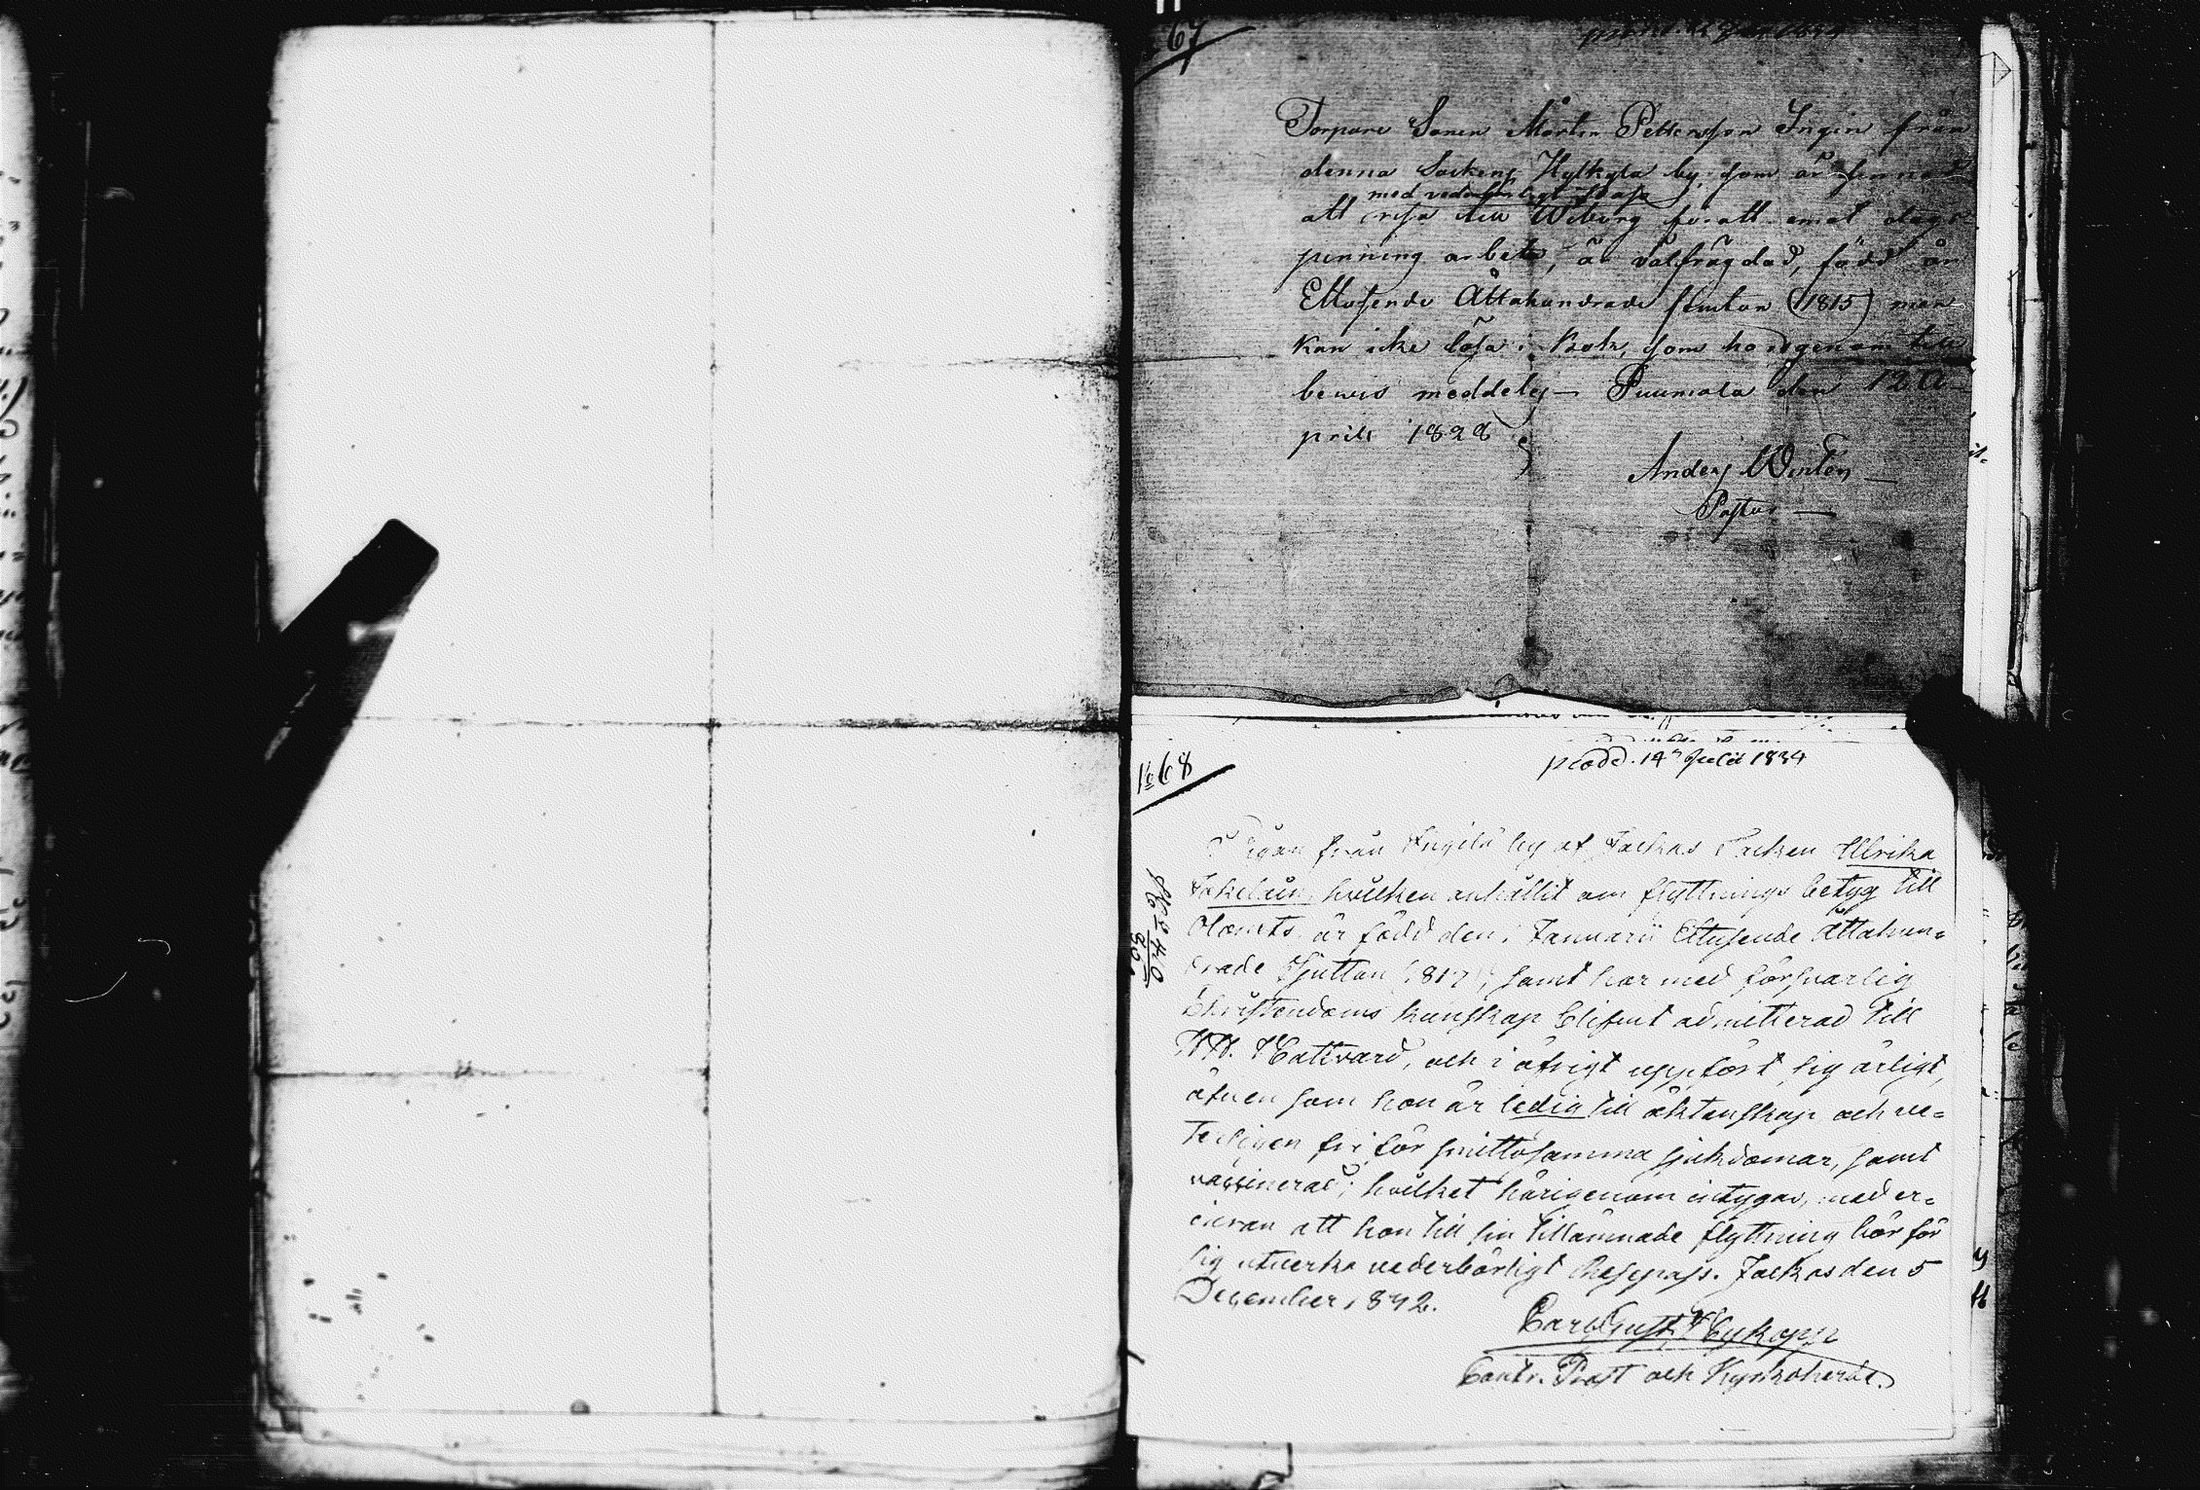 67
Torpare Sonen Mårten Pettersson Ingin från
denna Sockens Hylkylä by, som är sinnad
med vederbörligt Pass
att resa till Wiborg för att emot dags
penning arbeta, är välfrägdad, född år
Ettusende Åttahundrade femton (1815) men
kan icke läsa i Bok, som härigenom till
bewis meddelas — Puumala den 12 A-
pril 1828
Anders Winter
Pastor
No 68
prodd. 14 Julii 1834
Pigan från by af Jockas Socken Ulrika
hvilken anhållit om flyttnings betyg till
är född den Januarii Ettusende Åttahun=
drade Sjutton (1817), samt har med försvarlig
Christendoms kunskap blifvit admitterad till
H. H. Nattvard, och i öfrigt uppfört sig ärligt,
äfven som hon är ledig till äktenskap och ve=
terligen fri för smittosamma sjukdomar, samt
vaccinerad; hvilket härigenom intygas, med er=
inran att hon till sin tillämnade flyttning bör för
sig utverka vederbörligt Resepass. Jockas den 5
December 1832.
Carl Gust.
Contr. Prost och Kyrkoherde.